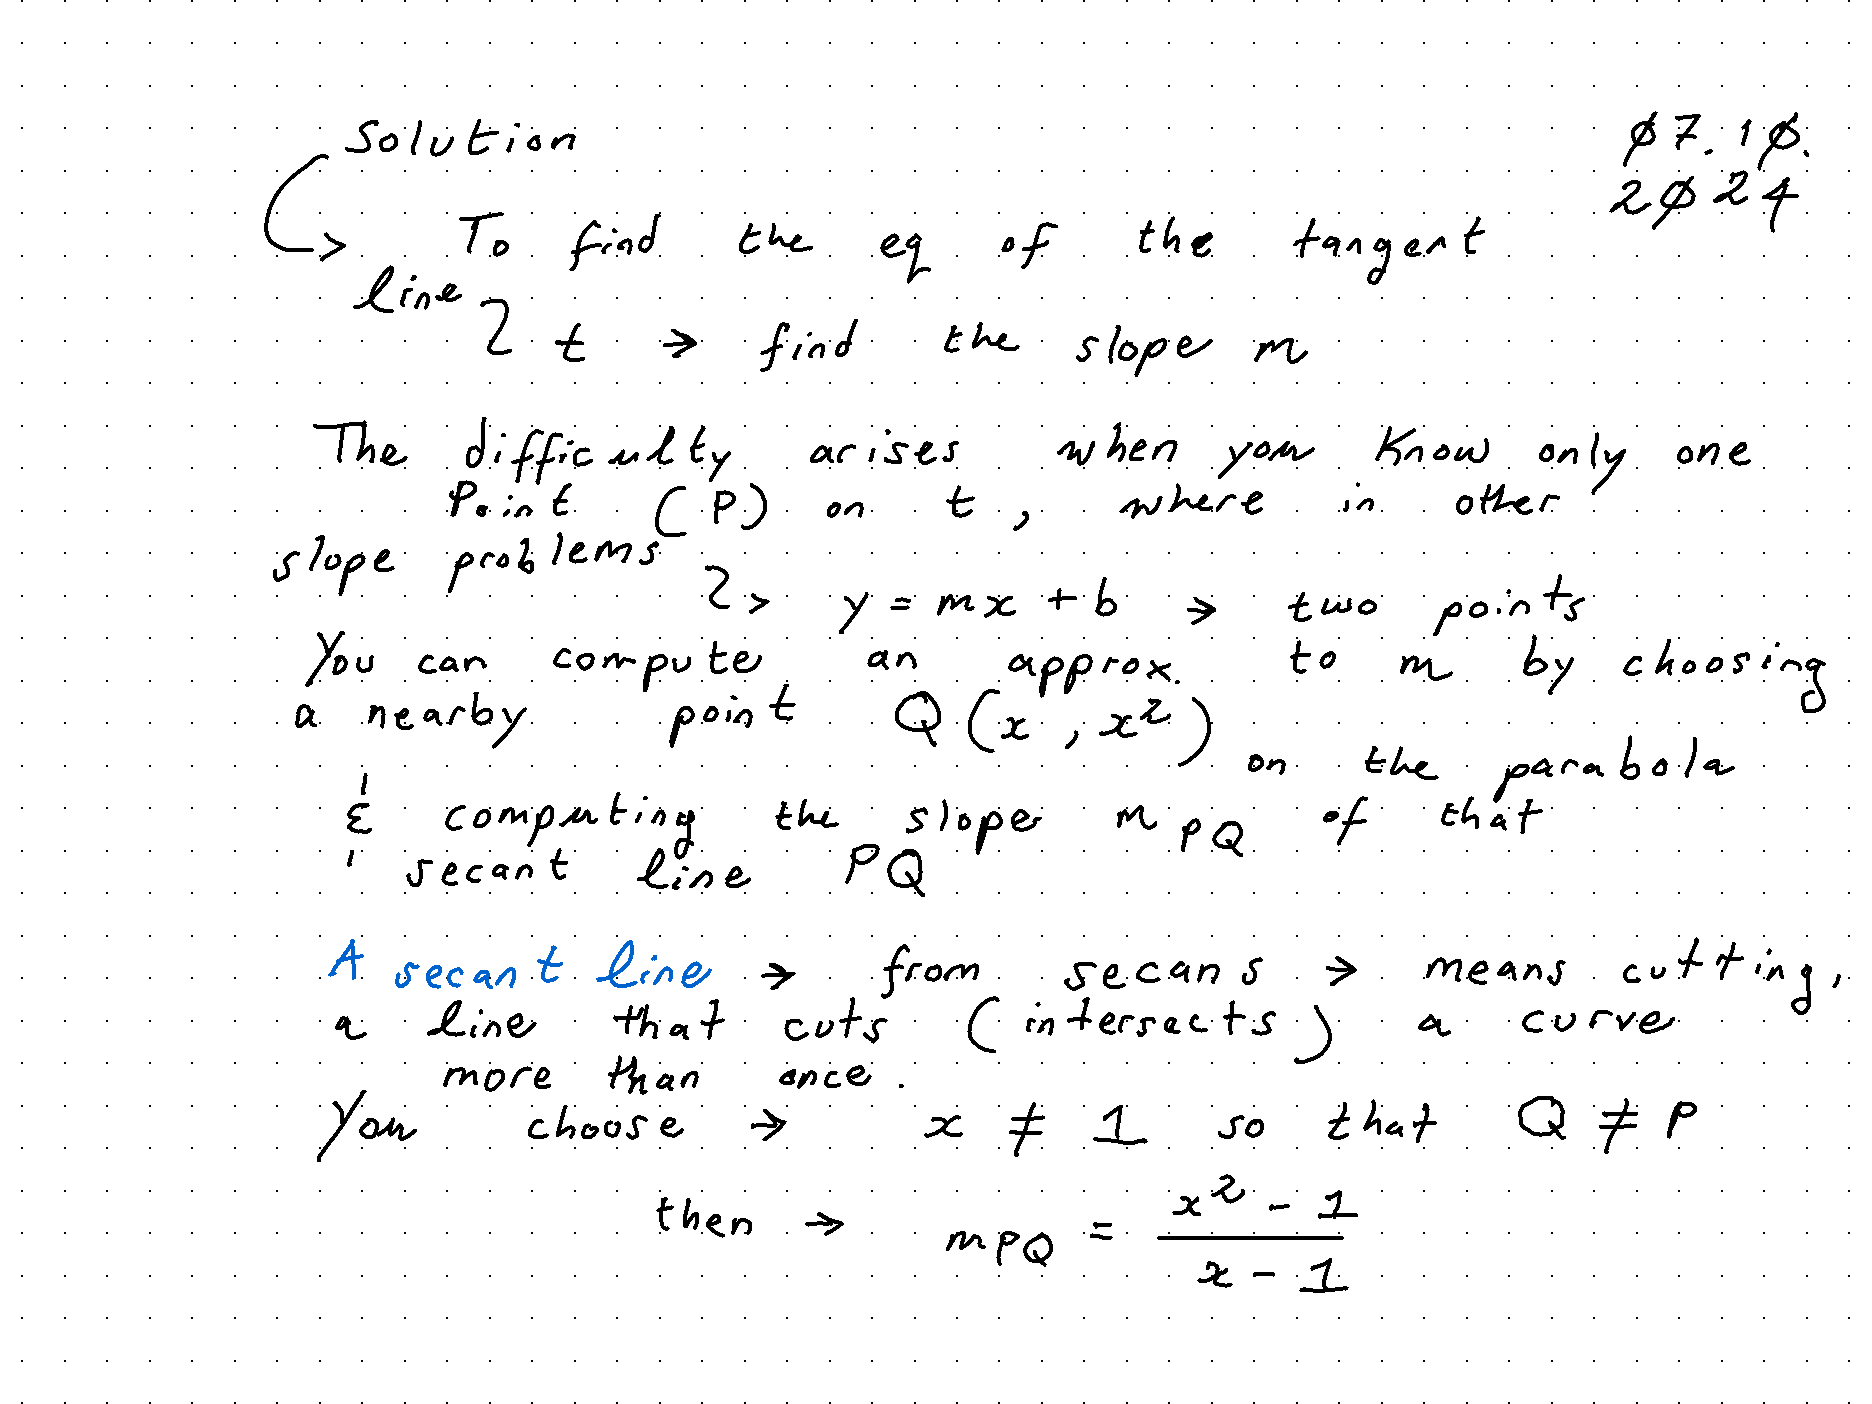 Solution
07.10.
2024
To find the eq of the tangent
line
t → find the slope m
The difficulty arises when you know only one
Point (P) on t, where in other
slope problems
y = mx + b → two points
You can compute an approx. to m by choosing
a nearby point Q(x, x²)
on the parabola
& computing the slope mPQ of that
secant line PQ
A secant line → from secans → means cutting,
a line that cuts (intersects) a curve
more than once.
You choose → x ≠ 1 so that Q ≠ P
then → mPQ = x² - 1
x - 1